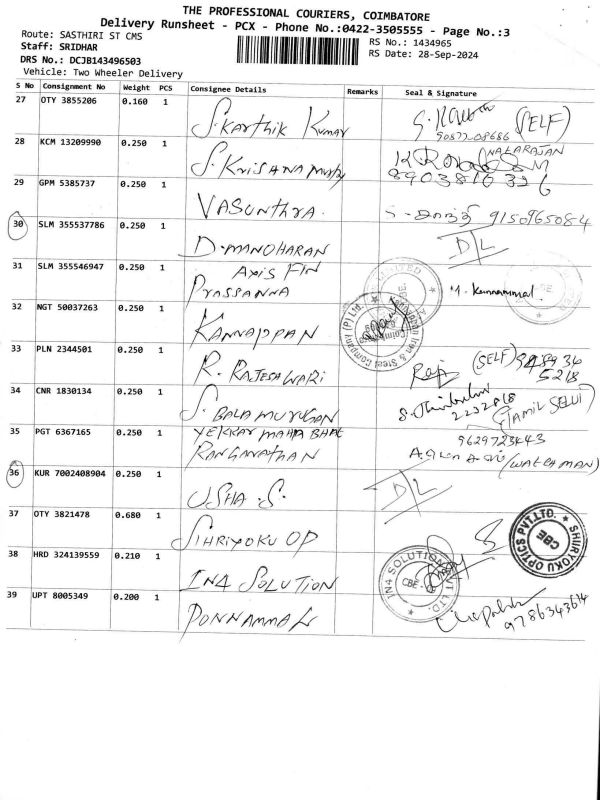 THE PROFESSIONAL COURIERS, COIMBATORE
Delivery Runsheet - PCX - Phone No.:0422-3505555 - Page No.:3
Route: SASTHIRI ST CMS
RS No.: 1434965
Staff: SRIDHAR
RS Date: 28-Sep-2024
DRS No.: DCJB143496503
Vehicle: Two Wheeler Delivery
S No Consignment No Weight PCS Consignee Details Remarks Seal & Signature
27 OTY 3855206 0.160 1 S. Karthik Kumar (SELF)
28 KCM 13209990 0.250 1 S. Krishna NATARAJAN
8903810326
29 GPM 5385737 0.250 1 VASUNTHRA. 9150965084
30 SLM 355537786 0.250 1 D. MANOHARAN D/L
31 SLM 355546947 0.250 1 AXIS FIN
PRASSANNA
32 NGT 50037263 0.250 1 KANNAPPAN
33 PLN 2344501 0.250 1 R. RAJESHWARI (SELF)
34 CNR 1830134 0.250 1 S. BALAMURUGAN (TAMIL SELVI)
35 PGT 6367165 0.250 1 RANGANATHAN 9629723443
(WATCHMAN)
36 KUR 7002408904 0.250 1 USHA .S. D/L
37 OTY 3821478 0.680 1 SIHRIYOKU OP
SHIRYOKU OPTICS PVT.LTD. CBE
38 HRD 324139559 0.210 1 IN4 SOLUTION
IN4 SOLUTION PVT LTD.
39 UPT 8005349 0.200 1 PONNAMMAL 9786343614